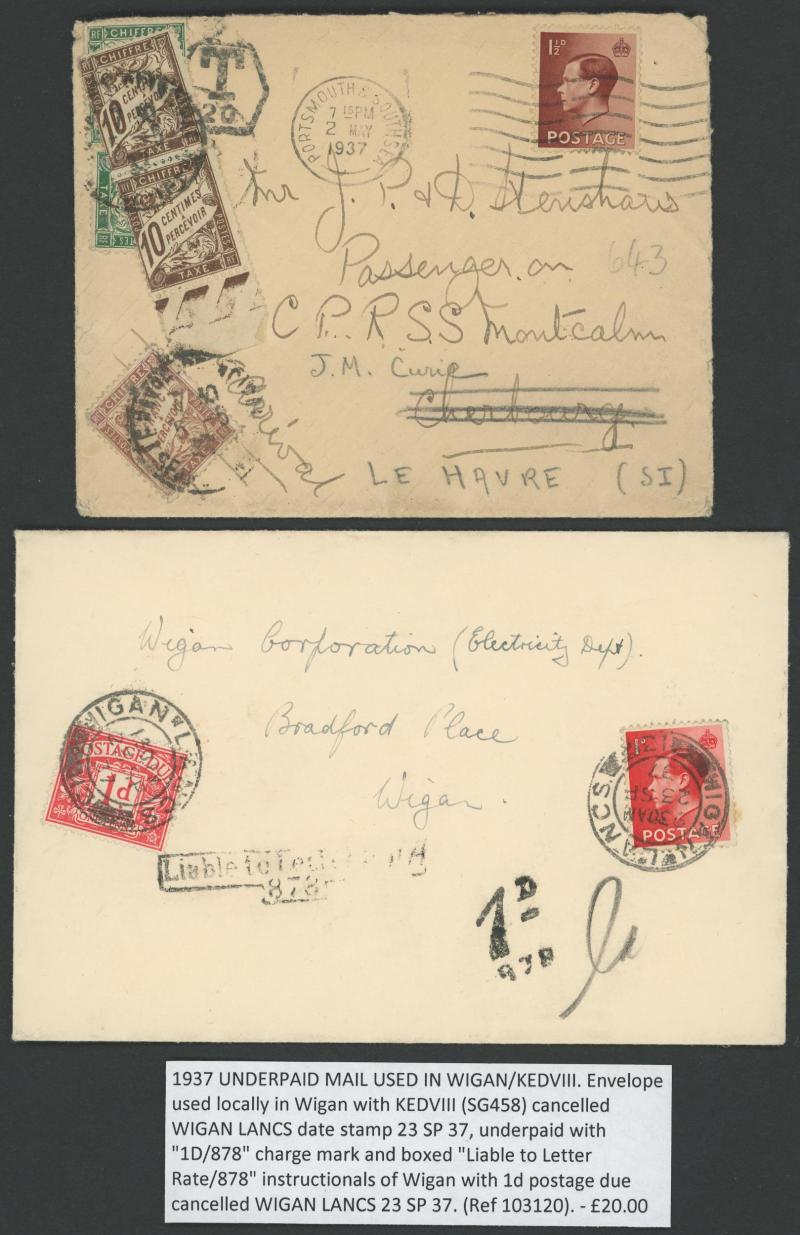 CHIFFRE
10
CENTIMES
PERCEVOIR
TAXE
CHIFFRE
10
CENTIMES
PERCEVOIR
TAXE
POSTES
RF
TAXE
CHIFFRE
T
20
PORTSMOUTH & SOUTHSEA
7 15 PM
2 MAY
1937
1½D
POSTAGE
Mr J. P. & D.
643
Passenger on
C P. R. S S Montcalm
J. M. Curie
Cherbourg
LE HAVRE (SI)
Wigan Corporation (Electricity Dept).
Bradford Place
Wigan.
WIGAN LANCS
POSTAGE DUE
1d
1D
POSTAGE
WIGAN LANCS
9 30 AM
23 SP
37
Liable to Letter
878
1D
878
1d
1937 UNDERPAID MAIL USED IN WIGAN/KEDVIII. Envelope
used locally in Wigan with KEDVIII (SG458) cancelled
WIGAN LANCS date stamp 23 SP 37, underpaid with
"1D/878" charge mark and boxed "Liable to Letter
Rate/878" instructionals of Wigan with 1d postage due
cancelled WIGAN LANCS 23 SP 37. (Ref 103120). - £20.00